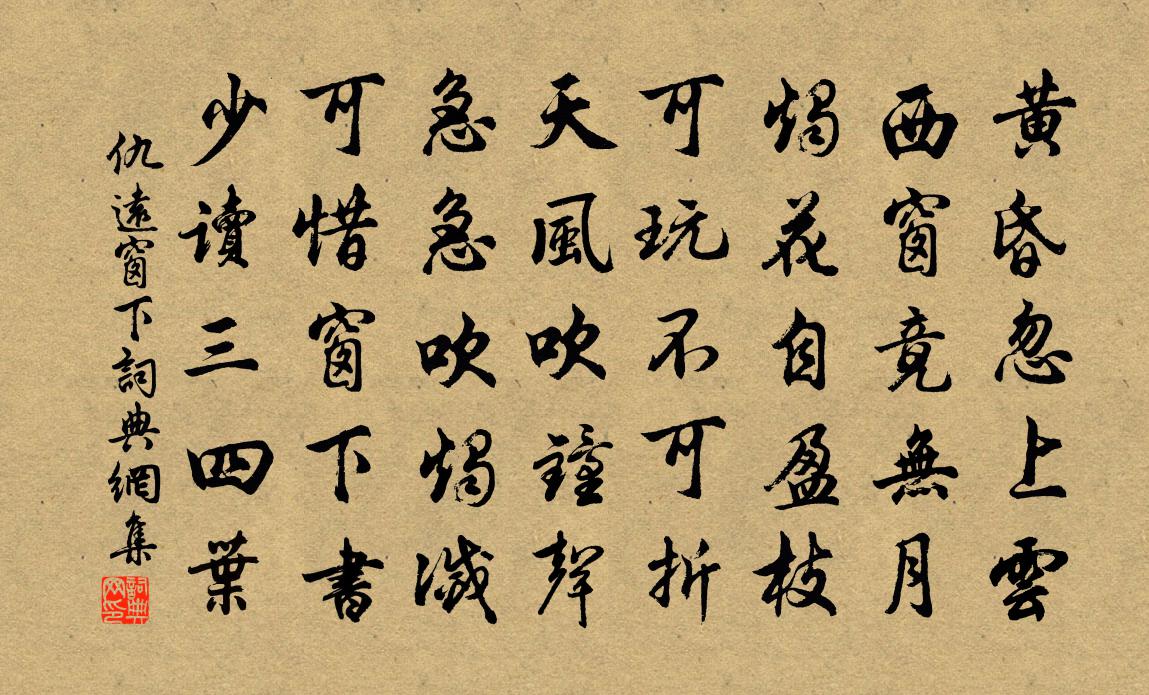 黃昏忽上雲
西窗竟無月
燭花自盈枝
可玩不可折
天風吹鐘聲
急急吹燭滅
可惜窗下書
少讀三四葉
仇遠窗下詞典網集
詞典網印